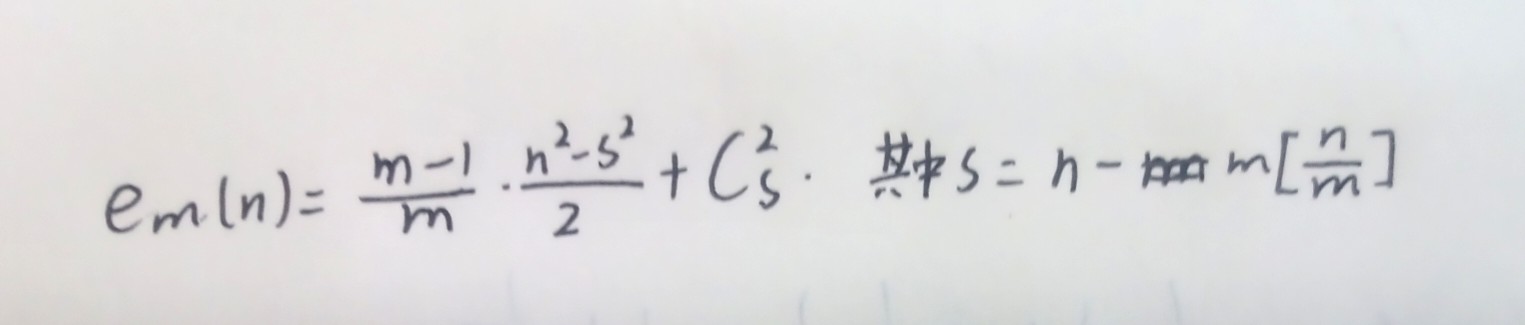 e_m(n) = \frac{m-1}{m} \cdot \frac{n^2-s^2}{2} + C_s^2. 其中 s = n - m[\frac{n}{m}]